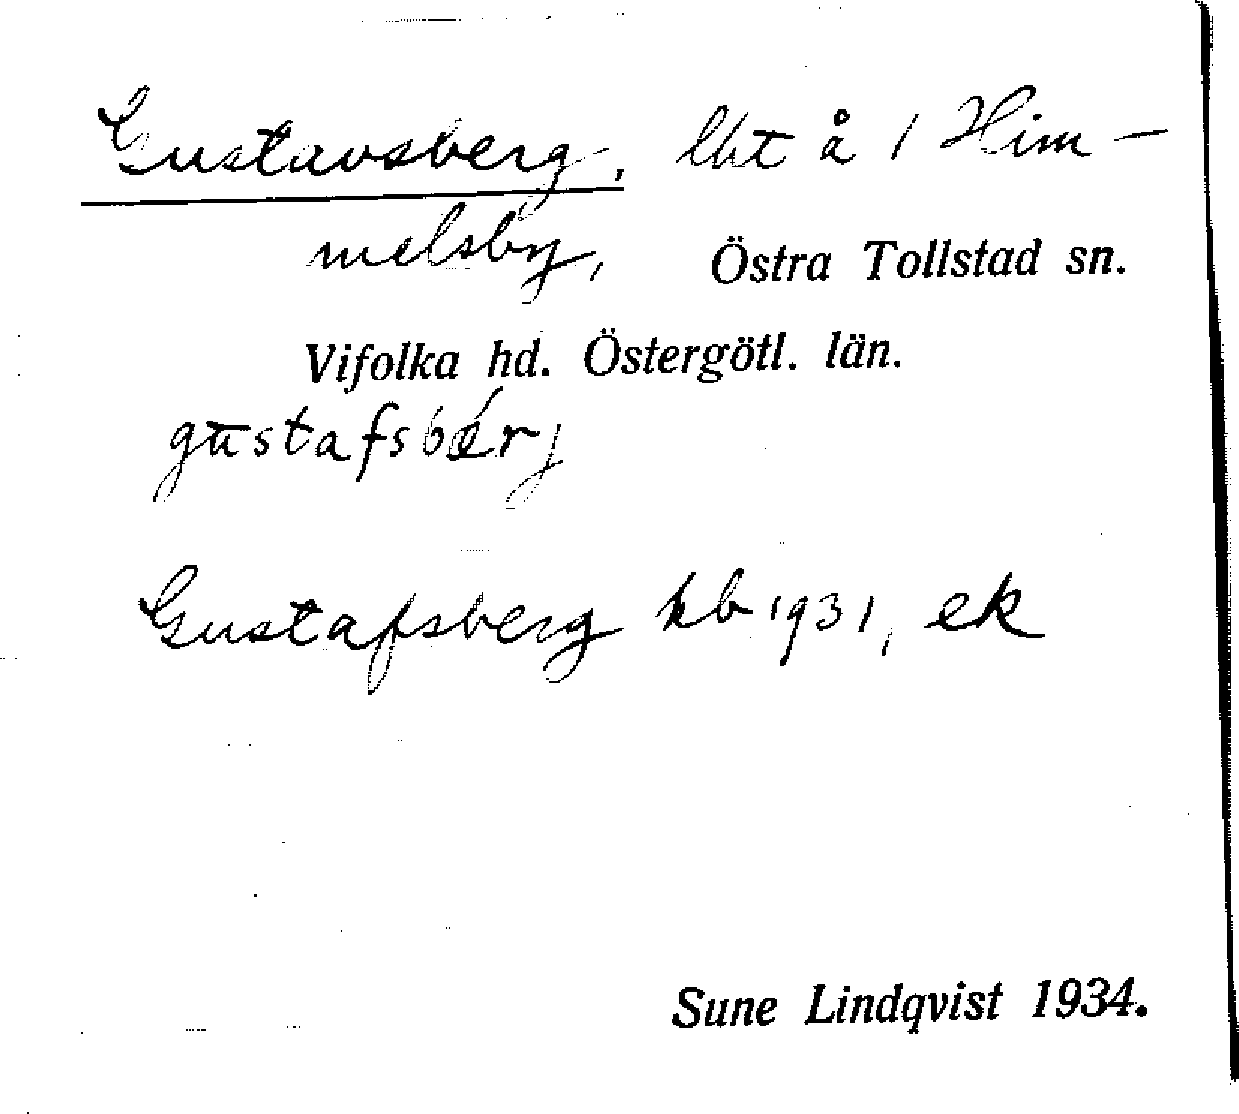 Gustavsberg, lht å 1 Him-
melsby, Östra Tollstad sn.
Vifolka hd. Östergötl. län.
gustafsbérj
Gustafsberg kb 1931, ek
Sune Lindqvist 1934.